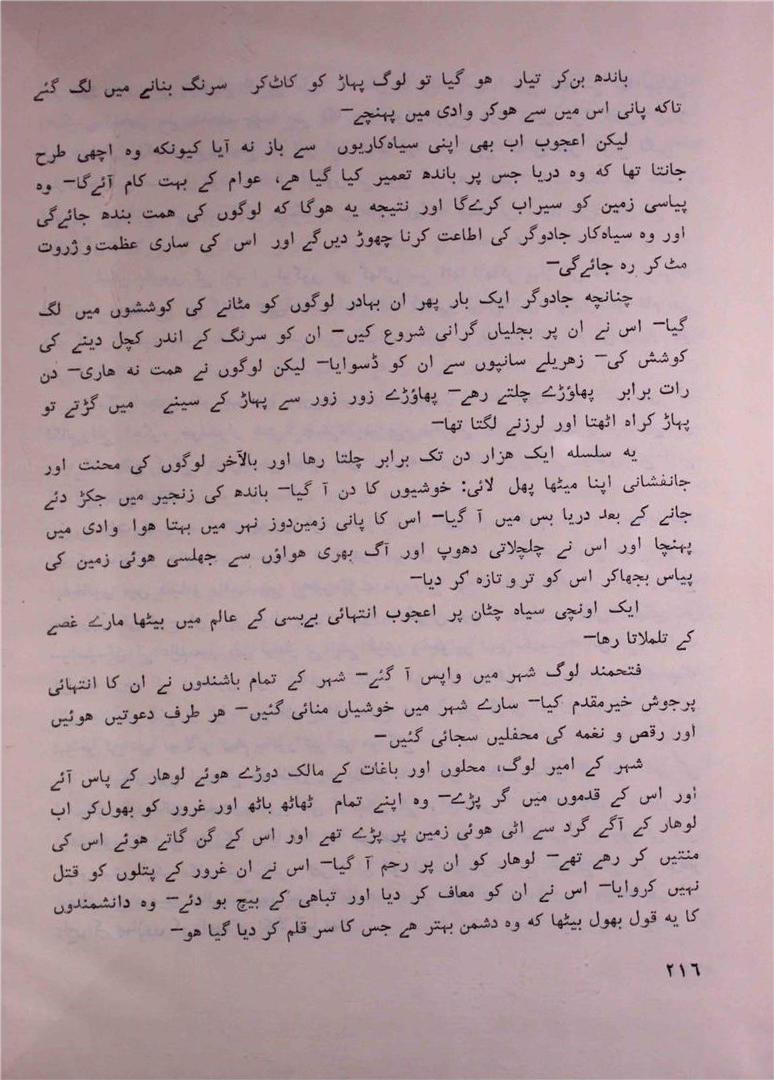 باندھ بن‌کر تیار هو گیا تو لوگ پہاڑ کو کاٹ‌کر سرنگ بنانے میں لگ گئے
تاکہ پانی اس میں سے هوکر وادی میں پہنچے—
لیکن اعجوب اب بھی اپنی سیاه‌کاریوں سے باز نہ آیا کیونکہ وه اچھی طرح
جانتا تھا کہ وه دریا جس پر باندھ تعمیر کیا گیا هے، عوام کے بہت کام آئے‌گا— وه
پیاسی زمین کو سیراب کرے‌گا اور نتیجہ یہ هوگا کہ لوگوں کی همت بندھ جائے‌گی
اور وه سیاه‌کار جادوگر کی اطاعت کرنا چھوڑ دیں‌گے اور اس کی ساری عظمت و ثروت
مٹ‌کر ره جائے‌گی—
چنانچہ جادوگر ایک بار پھر ان بہادر لوگوں کو مٹانے کی کوششوں میں لگ
گیا— اس نے ان پر بجلیاں گرانی شروع کیں— ان کو سرنگ کے اندر کچل دینے کی
کوشش کی— زهریلے سانپوں سے ان کو ڈسوایا— لیکن لوگوں نے همت نہ هاری— دن
رات برابر پھاؤڑے چلتے رهے— پھاؤڑے زور زور سے پہاڑ کے سینے میں گڑتے تو
پہاڑ کراه اٹھتا اور لرزنے لگتا تھا—
یہ سلسلہ ایک هزار دن تک برابر چلتا رها اور بالآخر لوگوں کی محنت اور
جانفشانی اپنا میٹھا پھل لائی: خوشیوں کا دن آ گیا— باندھ کی زنجیر میں جکڑ دئے
جانے کے بعد دریا بس میں آ گیا— اس کا پانی زمین‌دوز نہر میں بہتا هوا وادی میں
پہنچا اور اس نے چلچلاتی دھوپ اور آگ بھری هواؤں سے جھلسی هوئی زمین کی
پیاس بجھاکر اس کو تر و تازه کر دیا—
ایک اونچی سیاه چٹان پر اعجوب انتہائی بے‌بسی کے عالم میں بیٹھا مارے غصے
کے تلملاتا رها—
فتحمند لوگ شہر میں واپس آ گئے— شہر کے تمام باشندوں نے ان کا انتہائی
پرجوش خیرمقدم کیا— سارے شہر میں خوشیاں منائی گئیں— هر طرف دعوتیں هوئیں
اور رقص و نغمہ کی محفلیں سجائی گئیں—
شہر کے امیر لوگ، محلوں اور باغات کے مالک دوڑے هوئے لوهار کے پاس آئے
اور اس کے قدموں میں گر پڑے— وه اپنے تمام ٹھاٹھ باٹھ اور غرور کو بھول‌کر اب
لوهار کے آگے گرد سے اٹی هوئی زمین پر پڑے تھے اور اس کے گن گاتے هوئے اس کی
منتیں کر رهے تھے— لوهار کو ان پر رحم آ گیا— اس نے ان غرور کے پتلوں کو قتل
نہیں کروایا— اس نے ان کو معاف کر دیا اور تباهی کے بیج بو دئے— وه دانشمندوں
کا یہ قول بھول بیٹھا کہ وه دشمن بہتر هے جس کا سر قلم کر دیا گیا هو—
۲۱۶